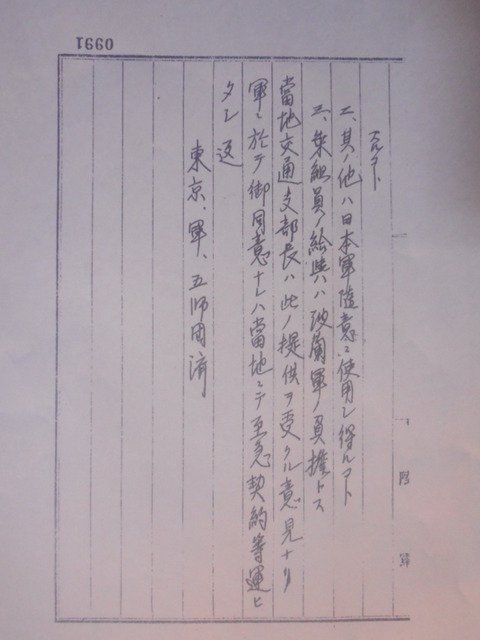 スルコト
二、其ノ他ハ日本軍随意ニ使用シ得ルコト
三、乗組員ノ給與ハ軍ノ負擔トス
當地交通支部長ハ此ノ提供ヲ受クル意見ナリ
軍ニ於テ御同意ナレハ當地ニテ至急契約等運ヒ
タシ 返
東京、軍、五師団済